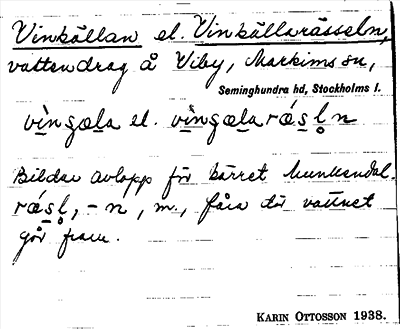 Vinkällan el. Vinkällarässeln,
vattendrag å Viby, Markims sn,
Seminghundra hd, Stockholms l.
vìnɡæla el. vìnɡælaræ̀sl̥n
Bildar avlopp för kärret Munkendal.
ræsl̥, -n, m., fåra där vattnet
går fram.
KARIN OTTOSSON 1938.